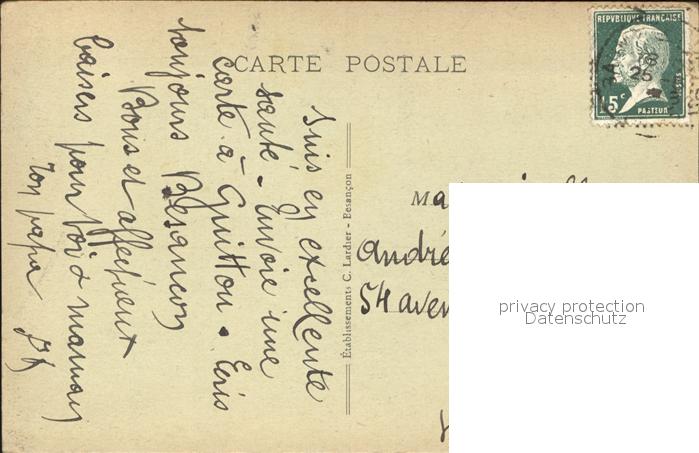 CARTE POSTALE
REPUBLIQUE FRANÇAISE
15c
PASTEUR
25
Suis en excellente
santé. Envoie une
carte à Guitton. Ecris
toujours Besançon
Bons et affectueux
baisers pour toi & maman
Ton papa
Établissements C. Lardier - Besançon
M
André
54 aven
privacy protection
Datenschutz